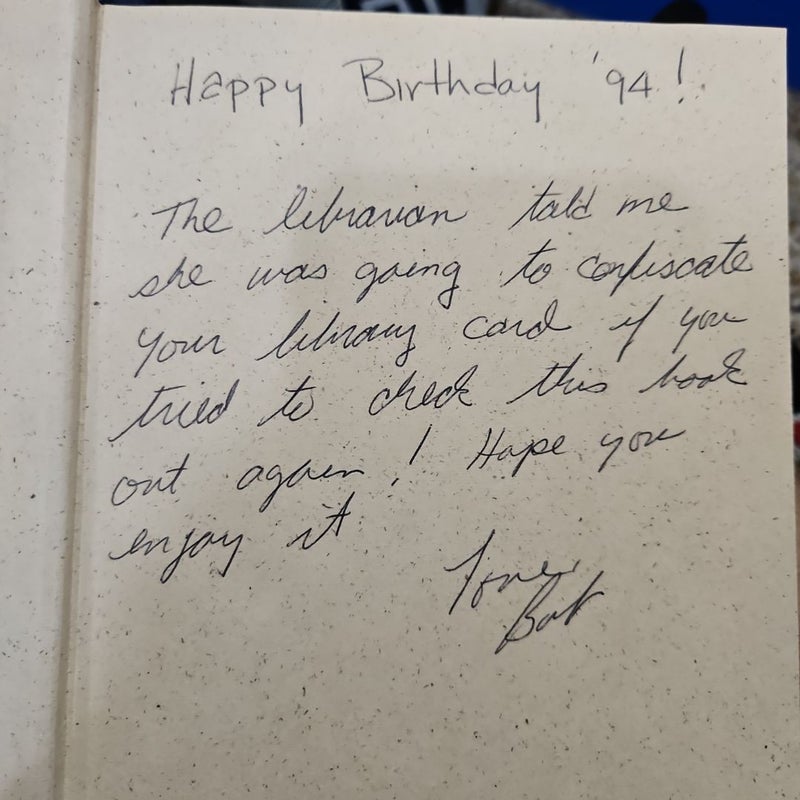 Happy Birthday '94!
The librarian told me
she was going to confiscate
your library card if you
tried to check this book
out again! Hope you
enjoy it
Love,
Bob